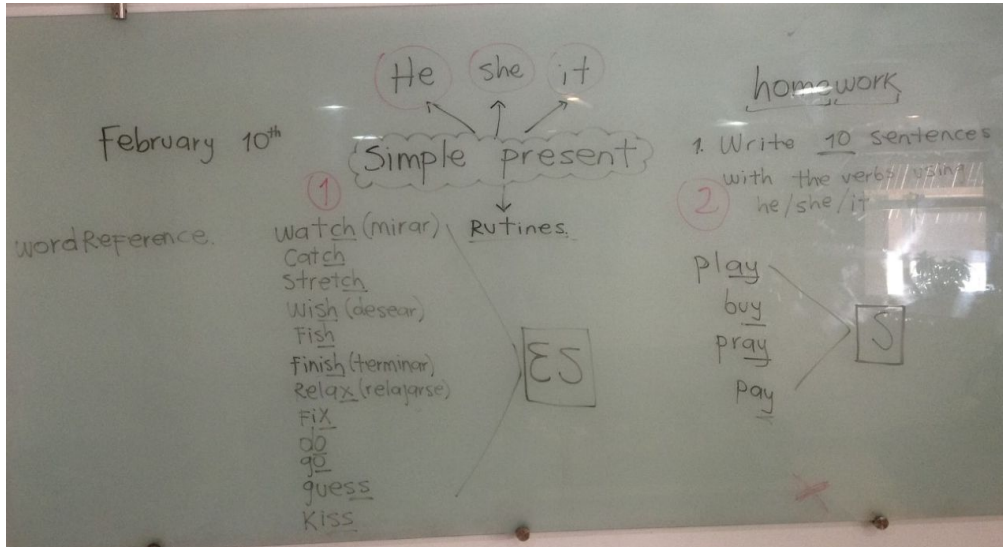 He she it
February 10th
Simple present
Rutines.
WordReference.
1
watch (mirar)
catch
stretch
wish (desear)
Fish
Finish (terminar)
Relax (relajarse)
Fix
do
go
guess
Kiss
ES
homework
1. Write 10 sentences
with the verbs using
he/she/it
2
play
buy
pray
pay
S